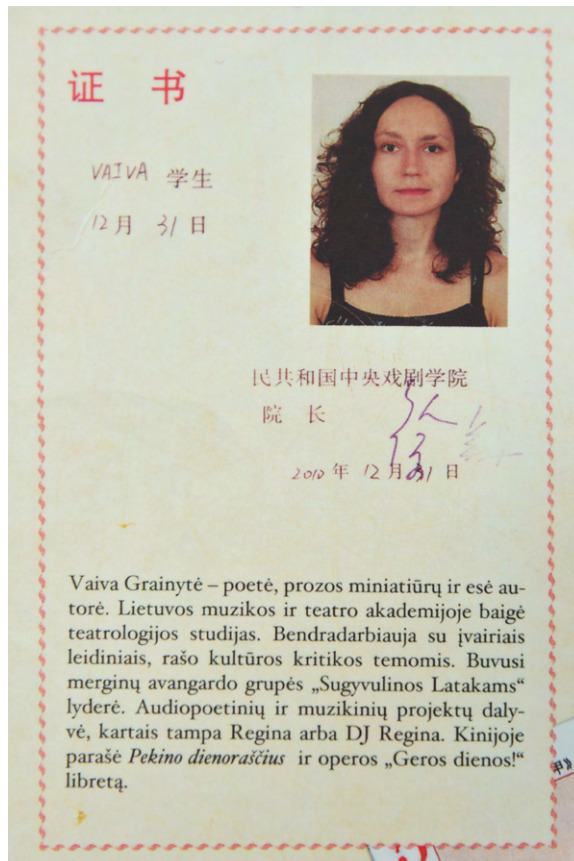 证 书
VAIVA 学生
12月 31日
民共和国中央戏剧学院
院 长
2010 年 12 月 31 日
Vaiva Grainytė – poetė, prozos miniatiūrų ir esė au-
torė. Lietuvos muzikos ir teatro akademijoje baigė
teatrologijos studijas. Bendradarbiauja su įvairiais
leidiniais, rašo kultūros kritikos temomis. Buvusi
merginų avangardo grupės „Sugyvulinos Latakams“
lyderė. Audiopoetinių ir muzikinių projektų daly-
vė, kartais tampa Regina arba DJ Regina. Kinijoje
parašė Pekino dienoraščius ir operos „Geros dienos!“
libretą.